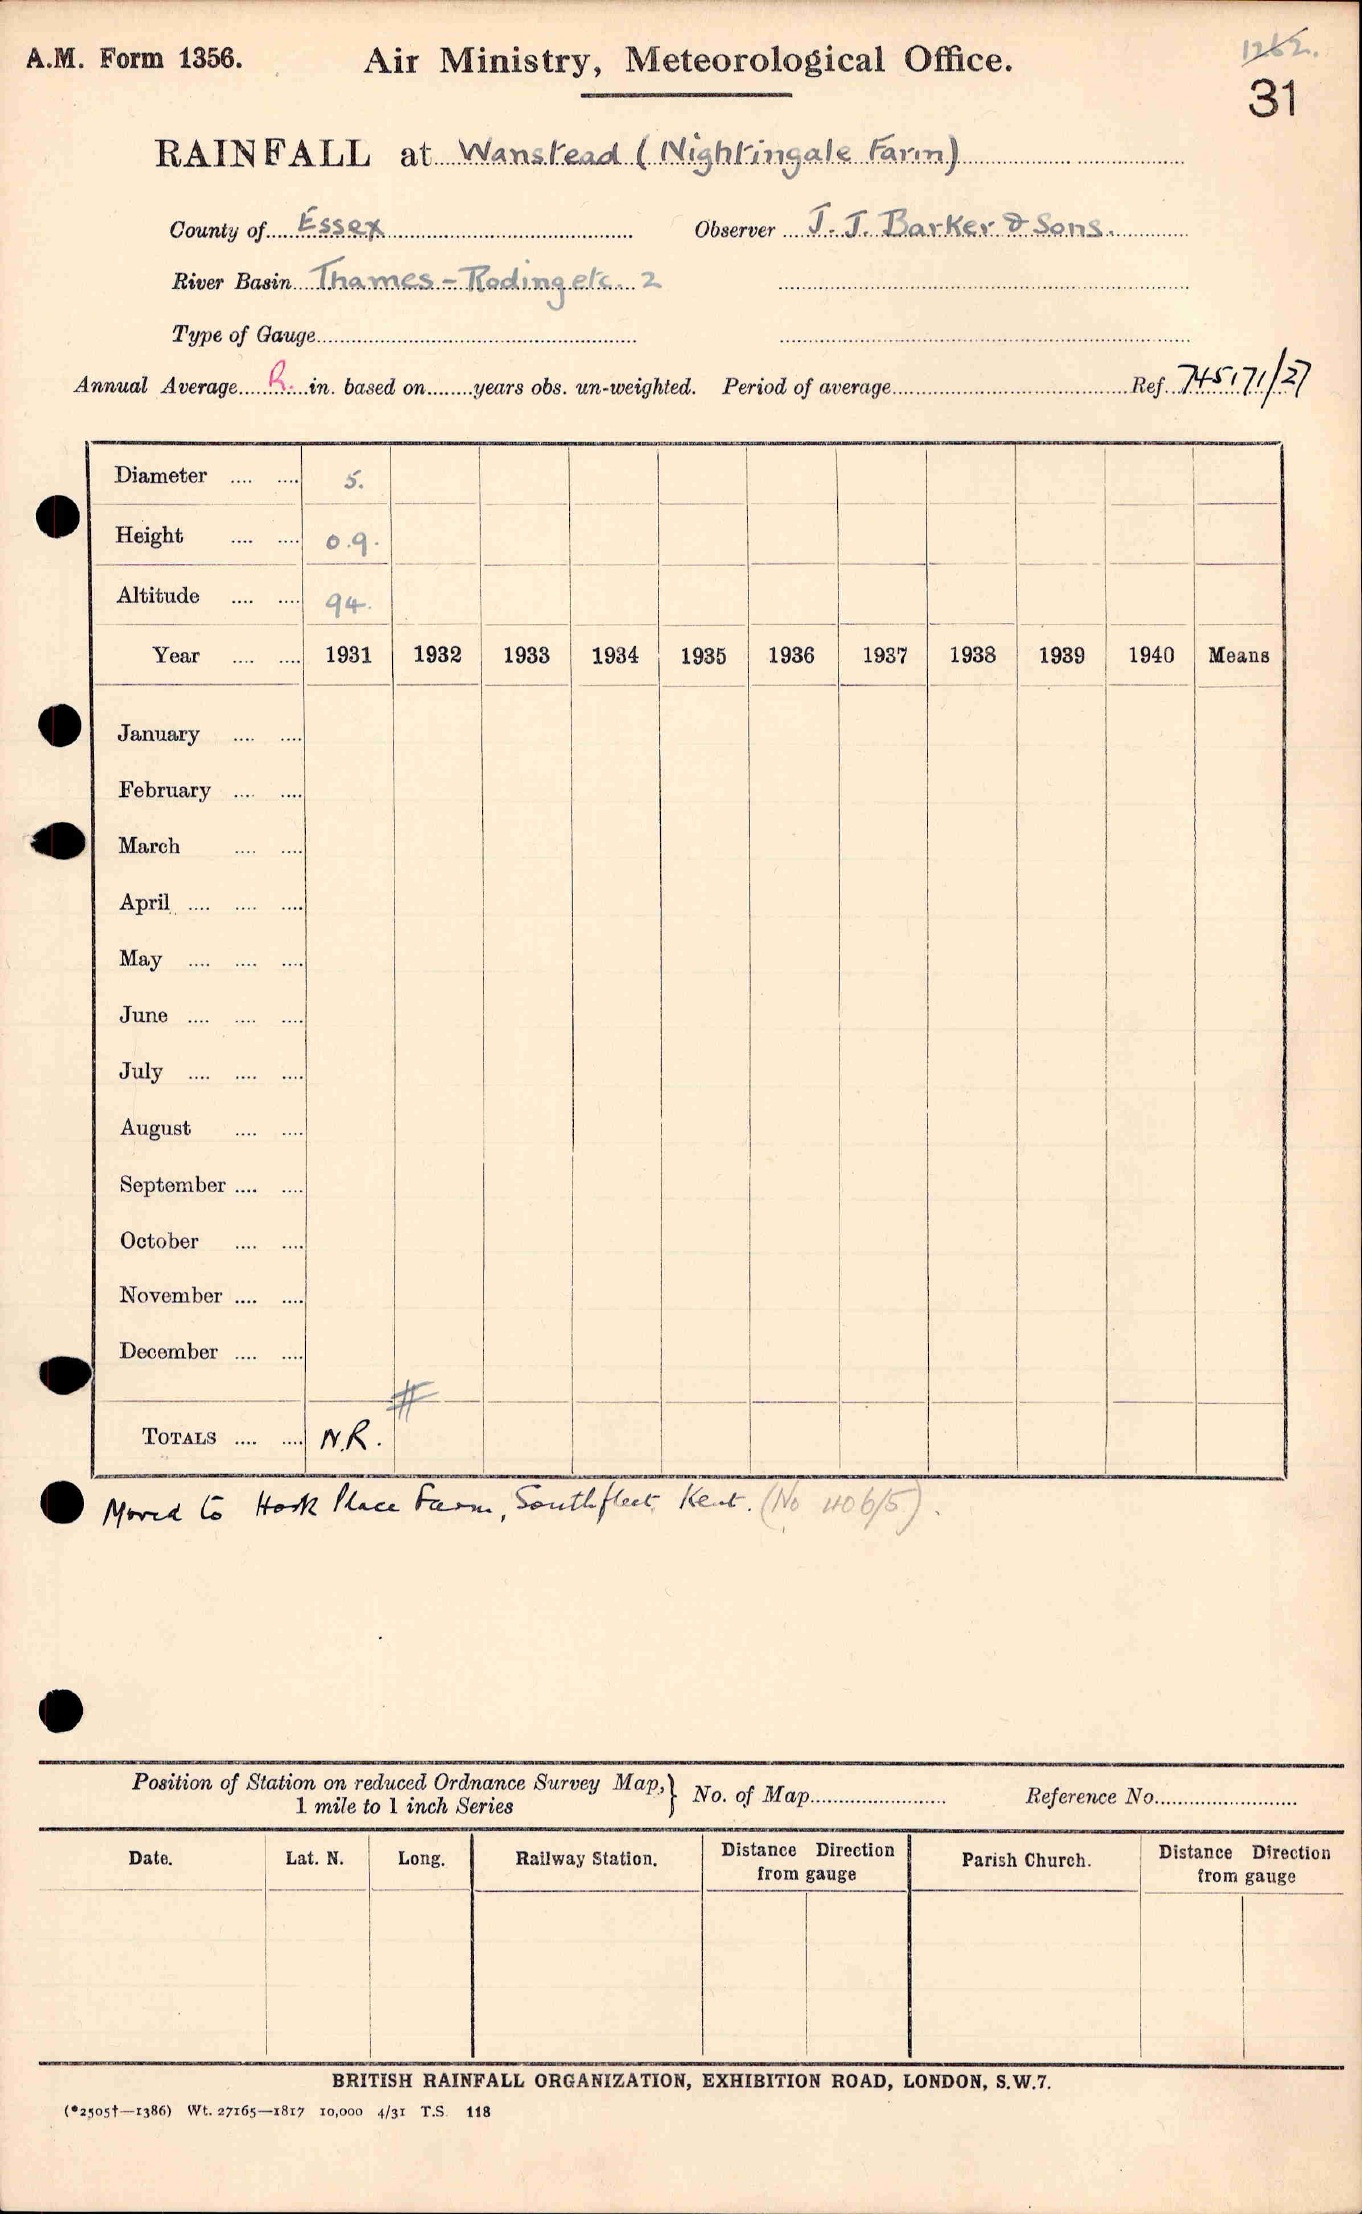 A.M. Form 1356.
Air Ministry, Meteorological Office.
1262.
31
RAINFALL at Wanstead (Nightingale Farm)
County of Essex Observer J. J. Barker & Sons.
River Basin Thames - Roding etc. 2
Type of Gauge
Annual Average R. in. based on years obs. un-weighted. Period of average Ref. 745171/27
Diameter 5.
Height 0.9.
Altitude 94.
Year 1931 1932 1933 1934 1935 1936 1937 1938 1939 1940 Means
January
February
March
April
May
June
July
August
September
October
November
December
#
TOTALS N.R.
Moved to Hook Place Farm, Southfleet, Kent. (No 1106/5).
Position of Station on reduced Ordnance Survey Map,
1 mile to 1 inch Series } No. of Map Reference No.
Date. Lat. N. Long. Railway Station. Distance Direction from gauge Parish Church. Distance Direction from gauge
BRITISH RAINFALL ORGANIZATION, EXHIBITION ROAD, LONDON, S.W.7.
(*2505†—1386) Wt. 27165—1817 10,000 4/31 T.S. 118